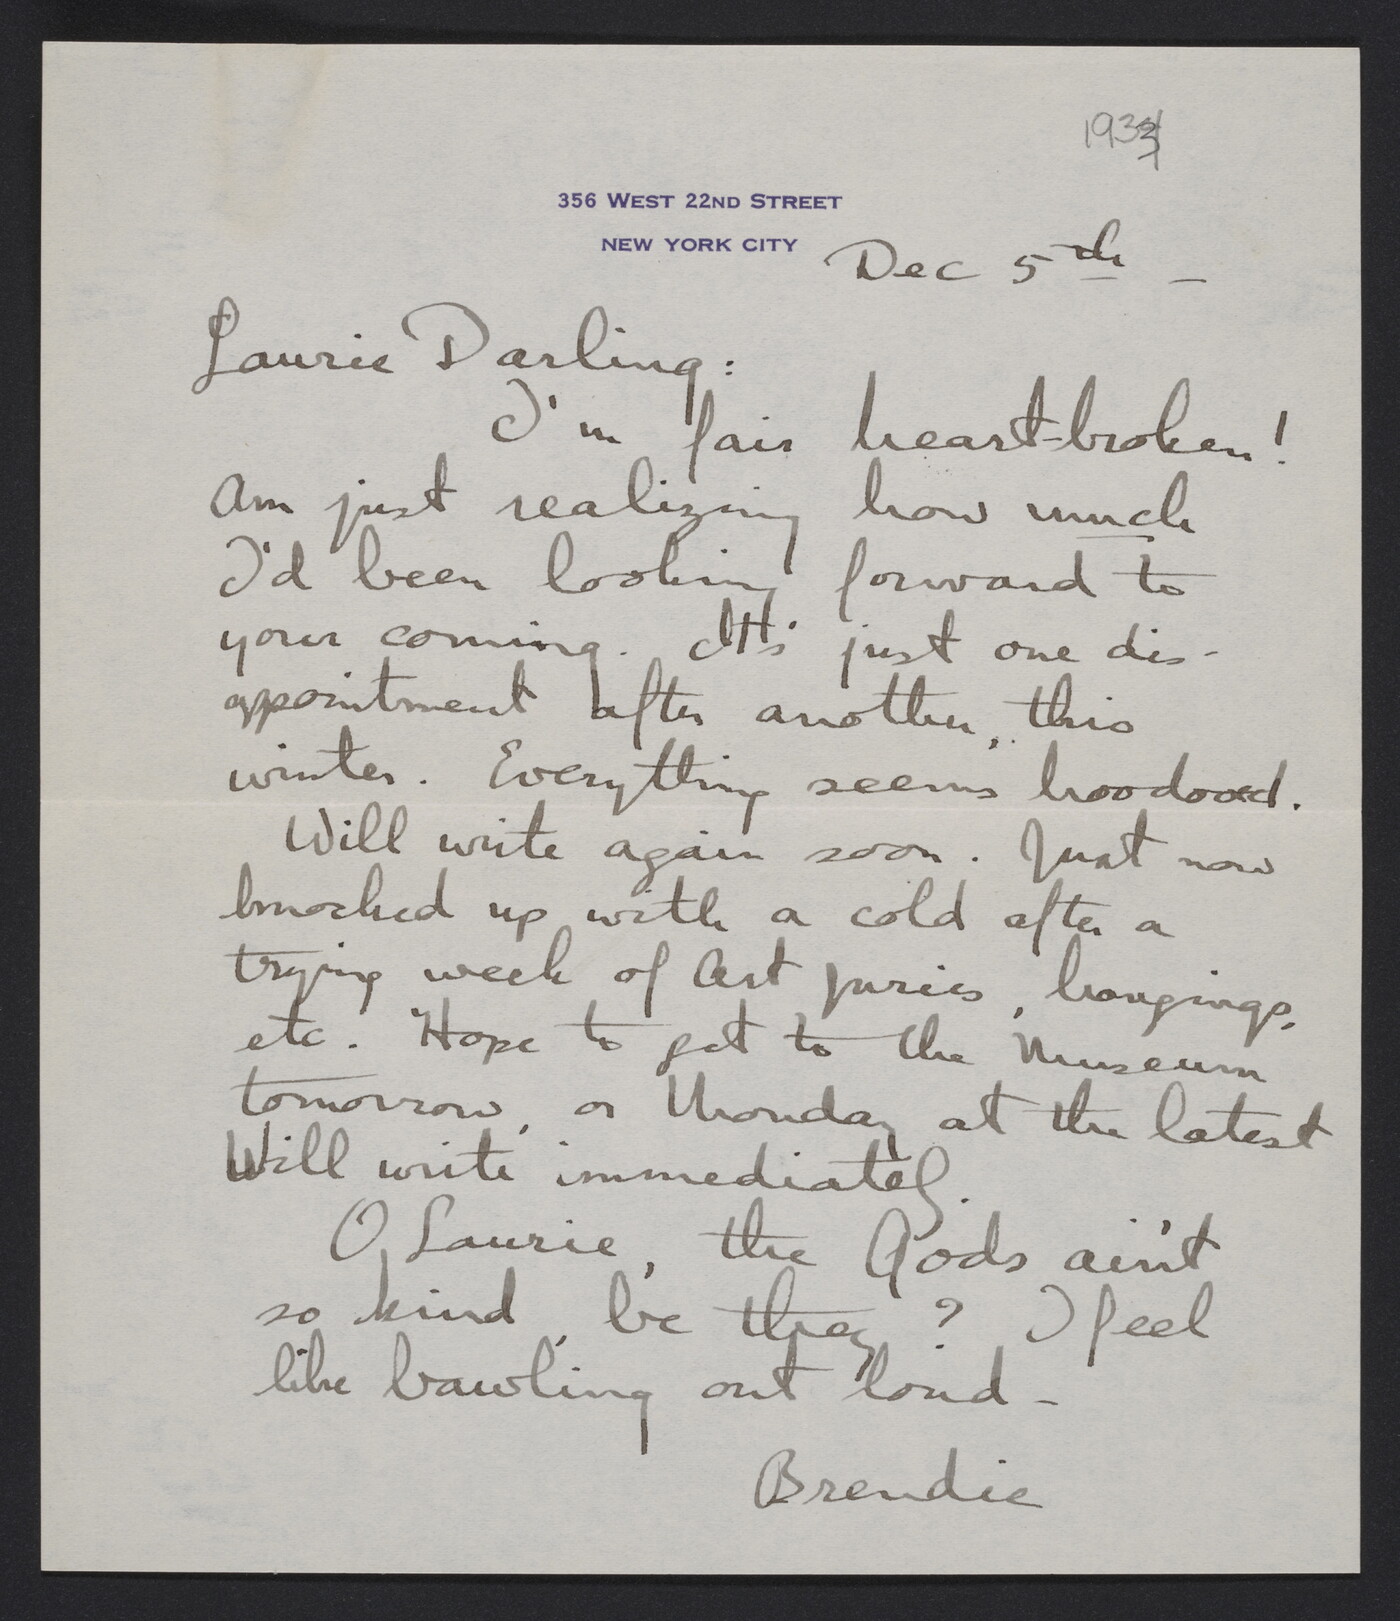 193
356 West 22nd Street
New York City
Dec 5th –
Laurie Darling:
I'm fair heart-broken!
Am just realizing how much
I'd been looking forward to
your coming. It's just one dis-
appointment after another, this
winter. Everything seems hoodooed.
Will write again soon. Just now
knocked up with a cold after a
trying week of Art juries, hangings,
etc. Hope to get to the Museum
tomorrow, or Monday at the latest
Will write immediately.
O Laurie, the Gods ain't
so kind, be they? I feel
like bawling out loud –
Brendie